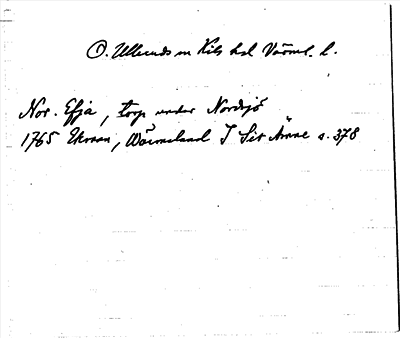 Ö. Ullerud sn Kils hd Värml. l.
Nor. Efja, torp under Nordsjö
1765 Ekman, Wärmeland I Sit Ämne s. 378